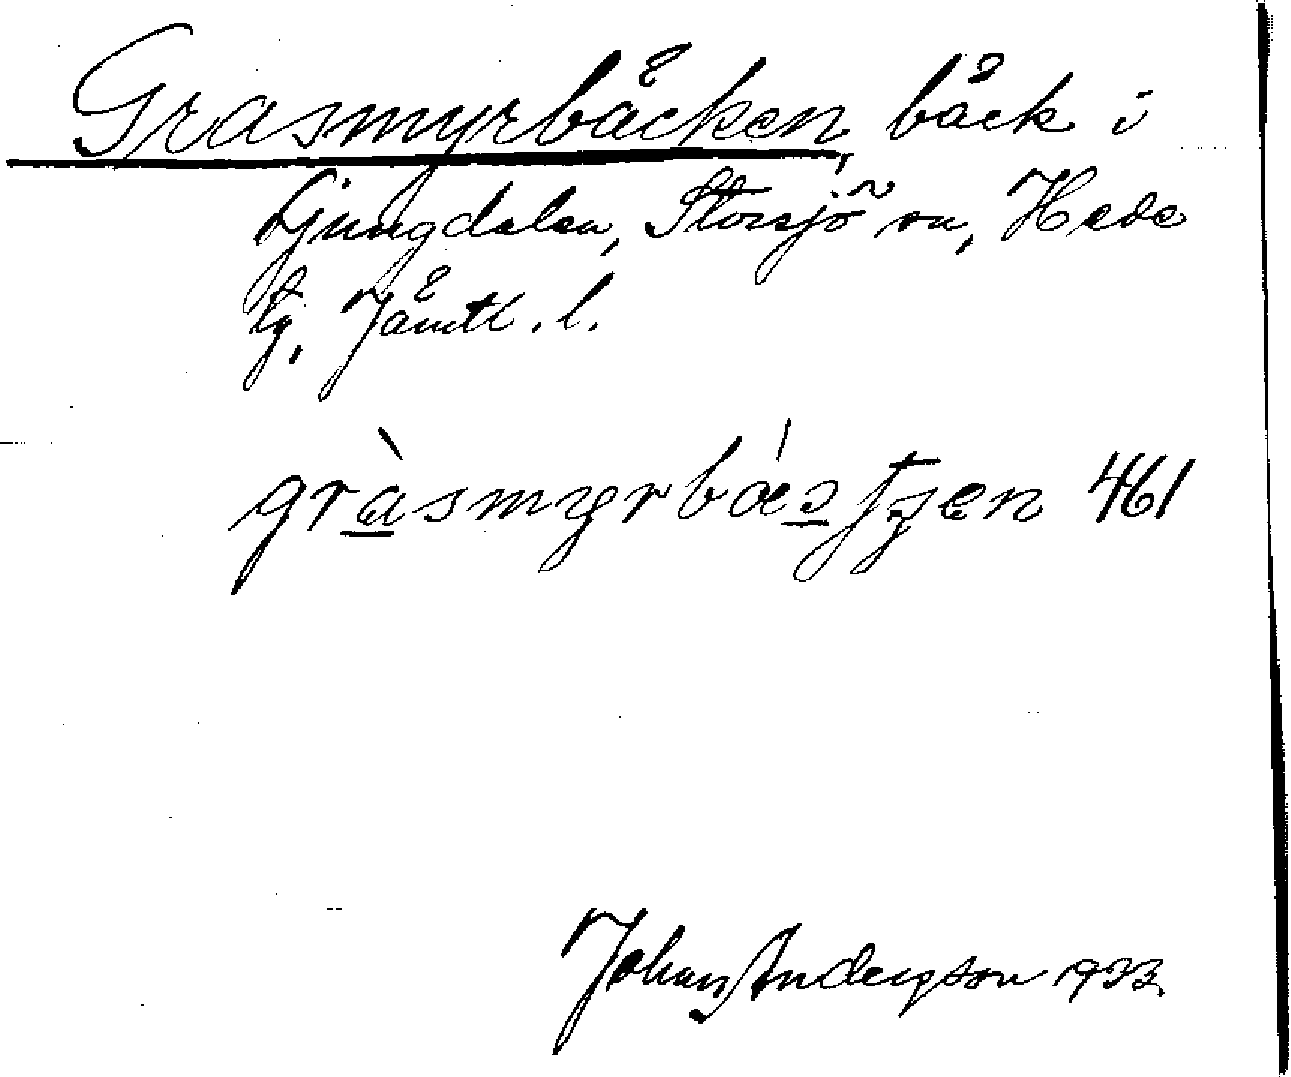 Grasmyrbäcken, bäck i
Ljungdalen, Storsjö sn, Hede
tg, Jämtl. l.
gràsmyrbǽstʃen 461
Johan Anderson 1933.